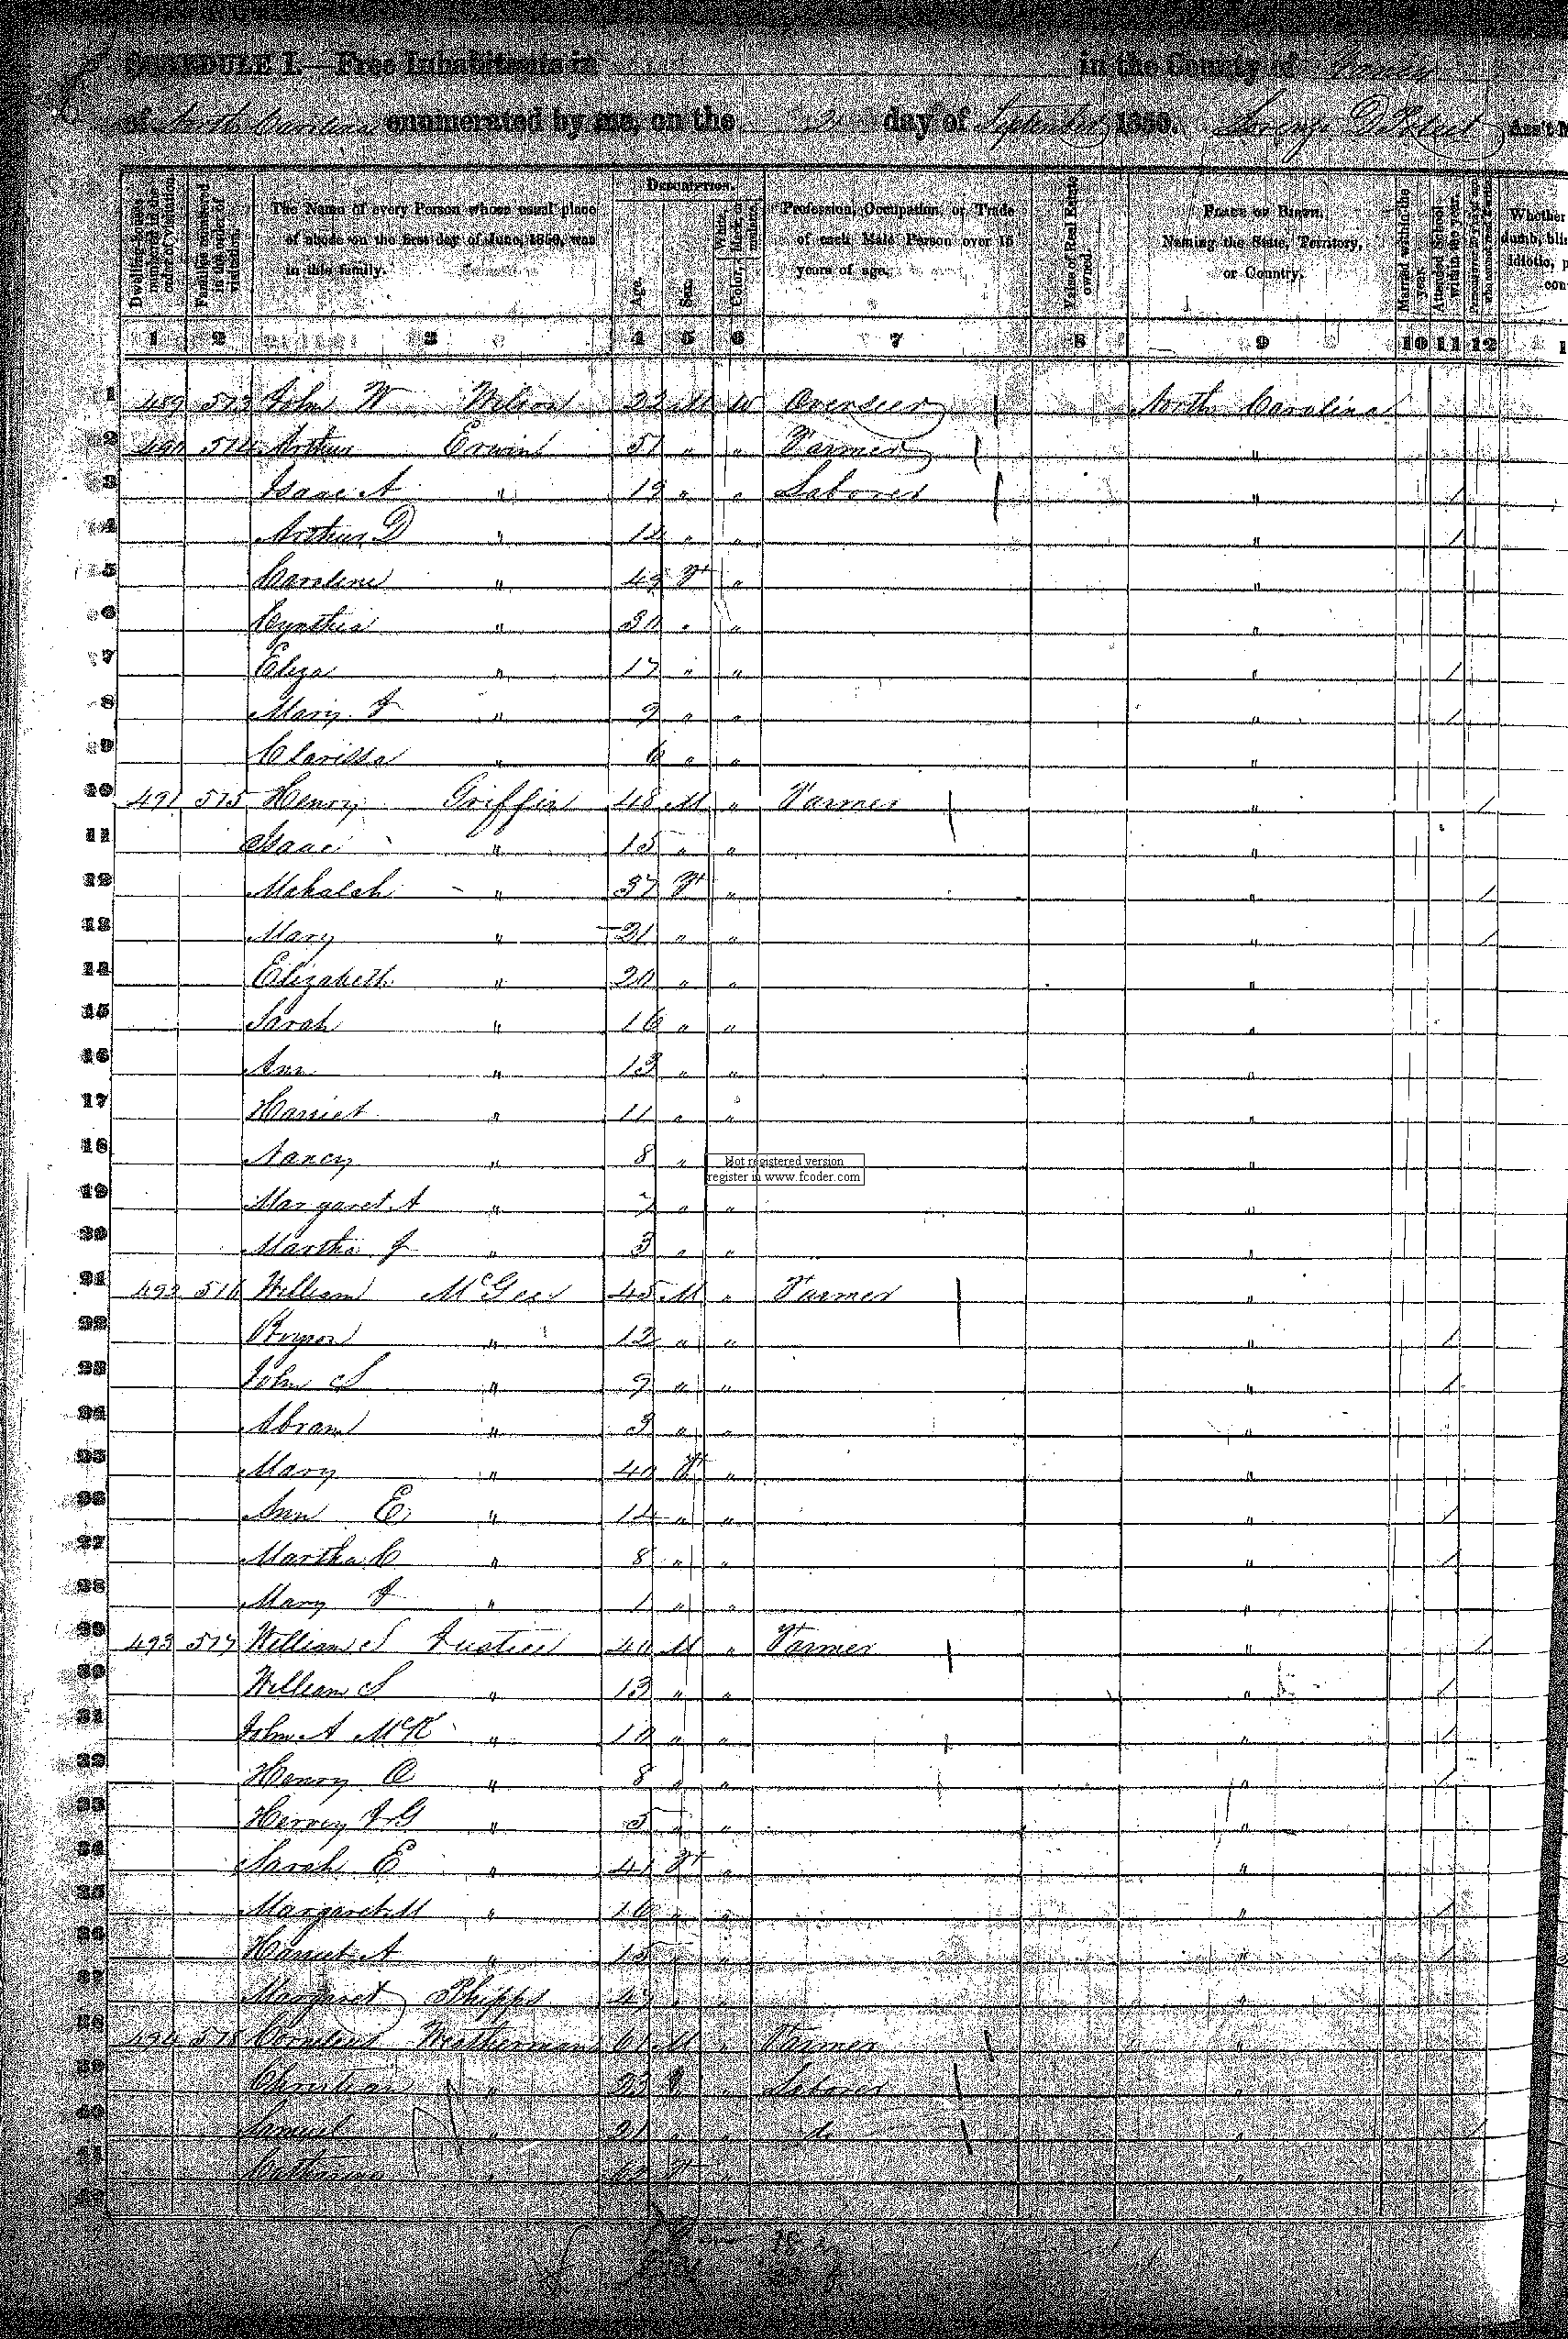 SCHEDULE I.—Free Inhabitants in in the County of Yancey
of North Carolina enumerated by me, on the 2 day of September 1850. Ass't M
Dwelling-houses numbered in the order of visitation.
Families numbered in the order of visitation.
The Name of every Person whose usual place of abode on the first day of June, 1850, was in this family.
DESCRIPTION.
Age.
Sex.
Color, White, black, or mulatto.
Profession, Occupation, or Trade of each Male Person over 15 years of age.
Value of Real Estate owned.
PLACE OF BIRTH. Naming the State, Territory, or Country.
Married within the year.
Attended School within the year.
Persons over 20 y'rs of age who cannot read & write.
Whether dumb, bli idiotic, p con
1 2 3 4 5 6 7 8 9 10 11 12 1
1 489 573 John W Wilson 22 M W Overseer North Carolina
2 490 574 Arthur Erwin 51 " " Farmer "
3 Isaac A " 19 " " Laborer " /
4 Arthur D " 12 " " " /
5 Caroline " 49 F " "
6 Cynthia " 30 " " "
7 Eliza " 17 " " " /
8 Mary J " 9 " " " /
9 Clarissa " 6 " " "
10 491 575 Henry Griffin 48 M " Farmer " /
11 Isaac " 15 " " "
12 Mahalah " 37 F " " /
13 Mary " 21 " " " /
14 Elizabeth " 20 " " "
15 Sarah " 16 " " "
16 Ann " 13 " " "
17 Harriet " 11 " " "
18 Nancy " 8 " "
Not registered version
register in www.fcoder.com
19 Margaret A " 7 " " "
20 Martha J " 3 " " "
21 492 516 William McGee 45 M " Farmer "
22 " 12 " " " /
23 John S " 9 " " " /
24 Abram " 3 " " "
25 Mary " 40 F " "
26 Ann E " 14 " " " /
27 Martha C " 8 " " " /
28 Mary J " 1 " " "
29 493 517 William S Justice 40 M " Farmer " /
30 William S " 13 " " " /
31 John A McK " 10 " " " /
32 Henry O " 8 " " " /
33 Hervey J G " 5 " " "
34 Sarah E " 41 F " "
35 Margaret M " 16 " " " /
36 Harriet A " 15 " " " /
37 Margaret Phipps 47 " " "
38 494 518 Cornelius Weatherman 61 M " Farmer "
39 Christian " 23 " Laborer "
40 Samuel " 21 " " do " /
41 Catherine " F " "
42